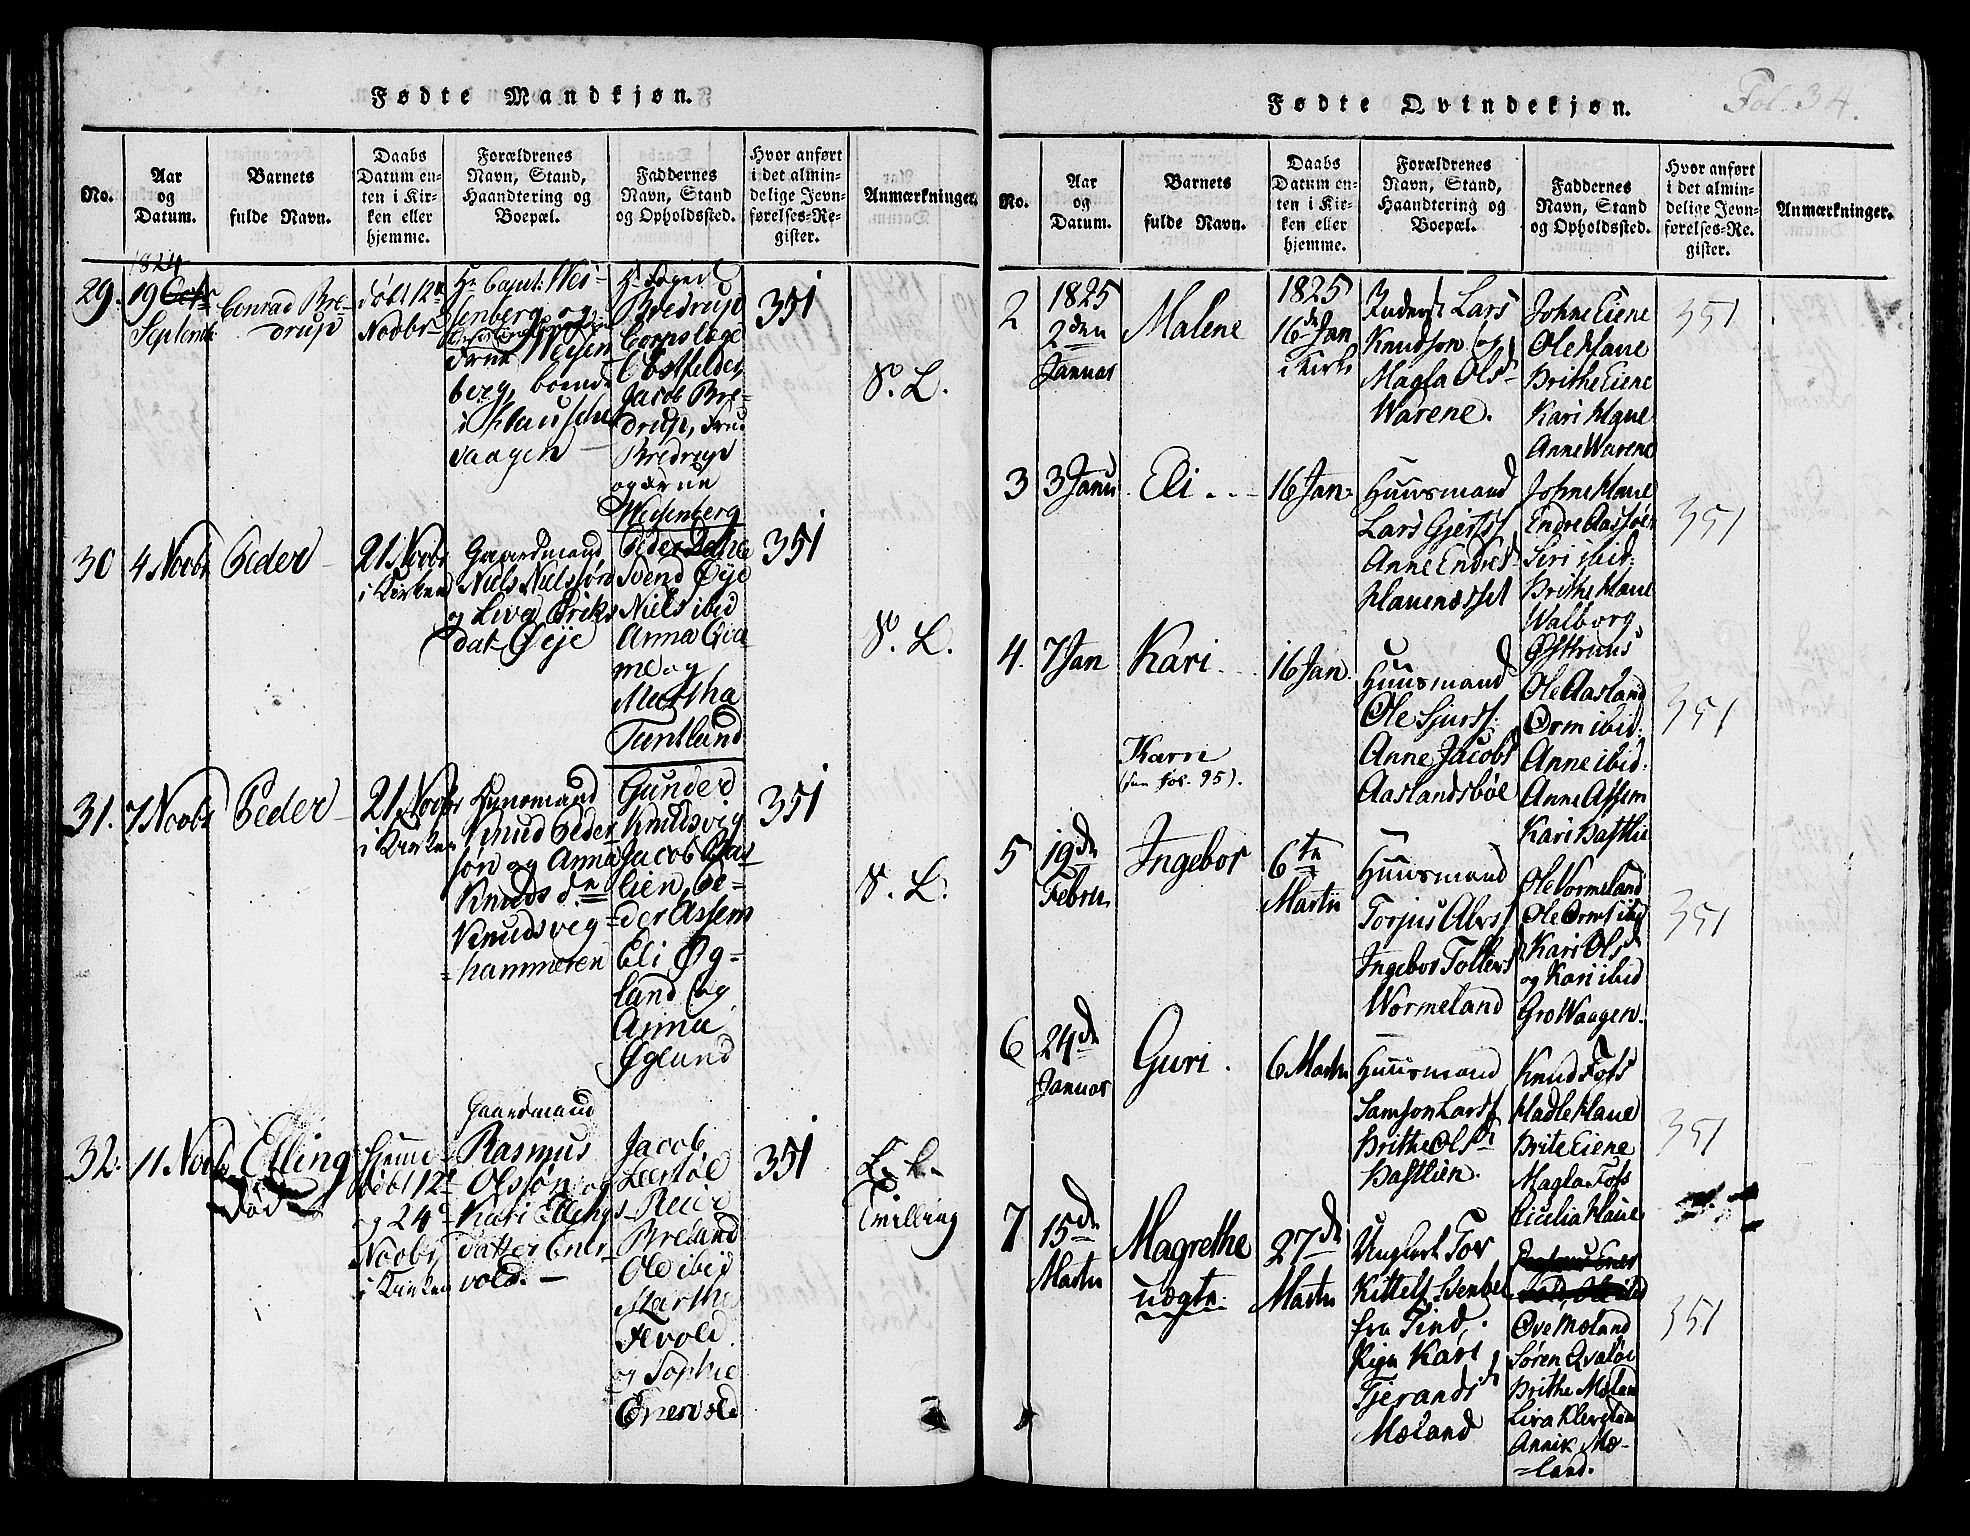 Fødte Mandkjøn.
No.
Aar
og
Datum.
Barnets
fulde Navn.
Daabs
Datum en-
ten i Kir-
ken eller
hjemme.
Forældrenes
Navn, Stand,
Haandtering og
Boepæl.
Faddernes
Navn, Stand
og Opholdssted.
Hvor anført
i det almin-
delige Jevn-
førelses-Re-
gister.
Anmærkninger.
29.
1824
19
Septemb
Conrad Bre-
drup
døbt 12
Novbr
Hr Capit: Wei-
senberg og
Frue Weisen
berg, boende
vaagen
Bredrup
Jacob Bre-
drup, Frue
Bredrup
og Frue
Weisenberg
351
S. L.
30
4 Novbr
Peder
21 Novbr
i Kirken
Gaardmand
Niels Nielssøn
og Liva Eriks
dat Øye
Peder
Svend Øye
Niels ibid
Anna
me og
Martha
Tuntland
351
S. L.
31.
7 Novbr
Peder
21 Novbr
i Kirken
Huusmand
Knud Peder
søn og Anna
Knuds d.
Knudsveg-
=hammeren
Gunder
Knudsvig
Jacob Bas-
lien, Pe-
der Assem
Eli Øg-
land og
Anna
Øglund
351
S. L.
32.
11 Novbr
Elling
død
hjemme
døbt 12
og 24
Novbr
i Kirken
Gaardmand
Rasmus
Olssøn og
Kari Ellings
datter Ener
vold.
Jacob
Leertøl
Reier
Breland
Ole ibid
Martha
Fevold
og Sophie
Enervold
351
L. L.
Tvilling
Fødte Qvindekjøn.
Fol. 34.
No.
Aar
og
Datum.
Barnets
fulde Navn.
Daabs
Datum en-
ten i Kir-
ken eller
hjemme.
Forældrenes
Navn, Stand,
Haandtering og
Boepæl.
Faddernes
Navn, Stand
og Opholdssted.
Hvor anført
i det almin-
delige Jevn-
førelses-Re-
gister.
Anmærkninger.
2
1825
2den
Januar
Malene
1825
16de Jan
i Kirk
Lars
Knudson og
Magla Ols
Warene.
Johne Eiene
Ole Haue
Brithe Eiene
Kari Haue
Anne Warene
351
3
3 Janu
Eli
16 Jan
Huusmand
Lars Gjertss
Anne Endresd
Hauenæsset
Johne Haue
Endre Aassøen
Siri ibid:
Brithe Haue
Walborg
351
4.
7 Jan
Kari
16 Jan.
Huusmand
Ole Sjurss.
Anne Jacobsd
Aaslandsbøe
Ole Aasland
Orm ibid:
Anne ibid:
Anne Assem
Kari Hastlie
351
Karn
(sen fol. 95).
5
19de
Febru
Ingebor
6te
Marts
Huusmand
Torjus Alvss
Ingebor Tollevs
Wormeland
Ole Vormeland
Ole Orms ibid
Kari Olsd
og Kari ibid
Gro Waagen.
351
6
24de
Januar
Guri.
6 Marts
Huusmand
Samson Larss
Brithe Olsd
Hastlien.
Knud Foss
Madle Haue
Brite Eiene
Magla Foss
Cicelia Haue
351
7
15de
Marts
Magrethe
uægte
27de
Marts
Ungkarl Tor
Kittels Stenbøl
fra Tind,
Pige Kari
Tjerandsd
Mæland
Ove Mæland
Søren Qvaløe
Brithe Mæland
Annik Mæ-
=land.
351